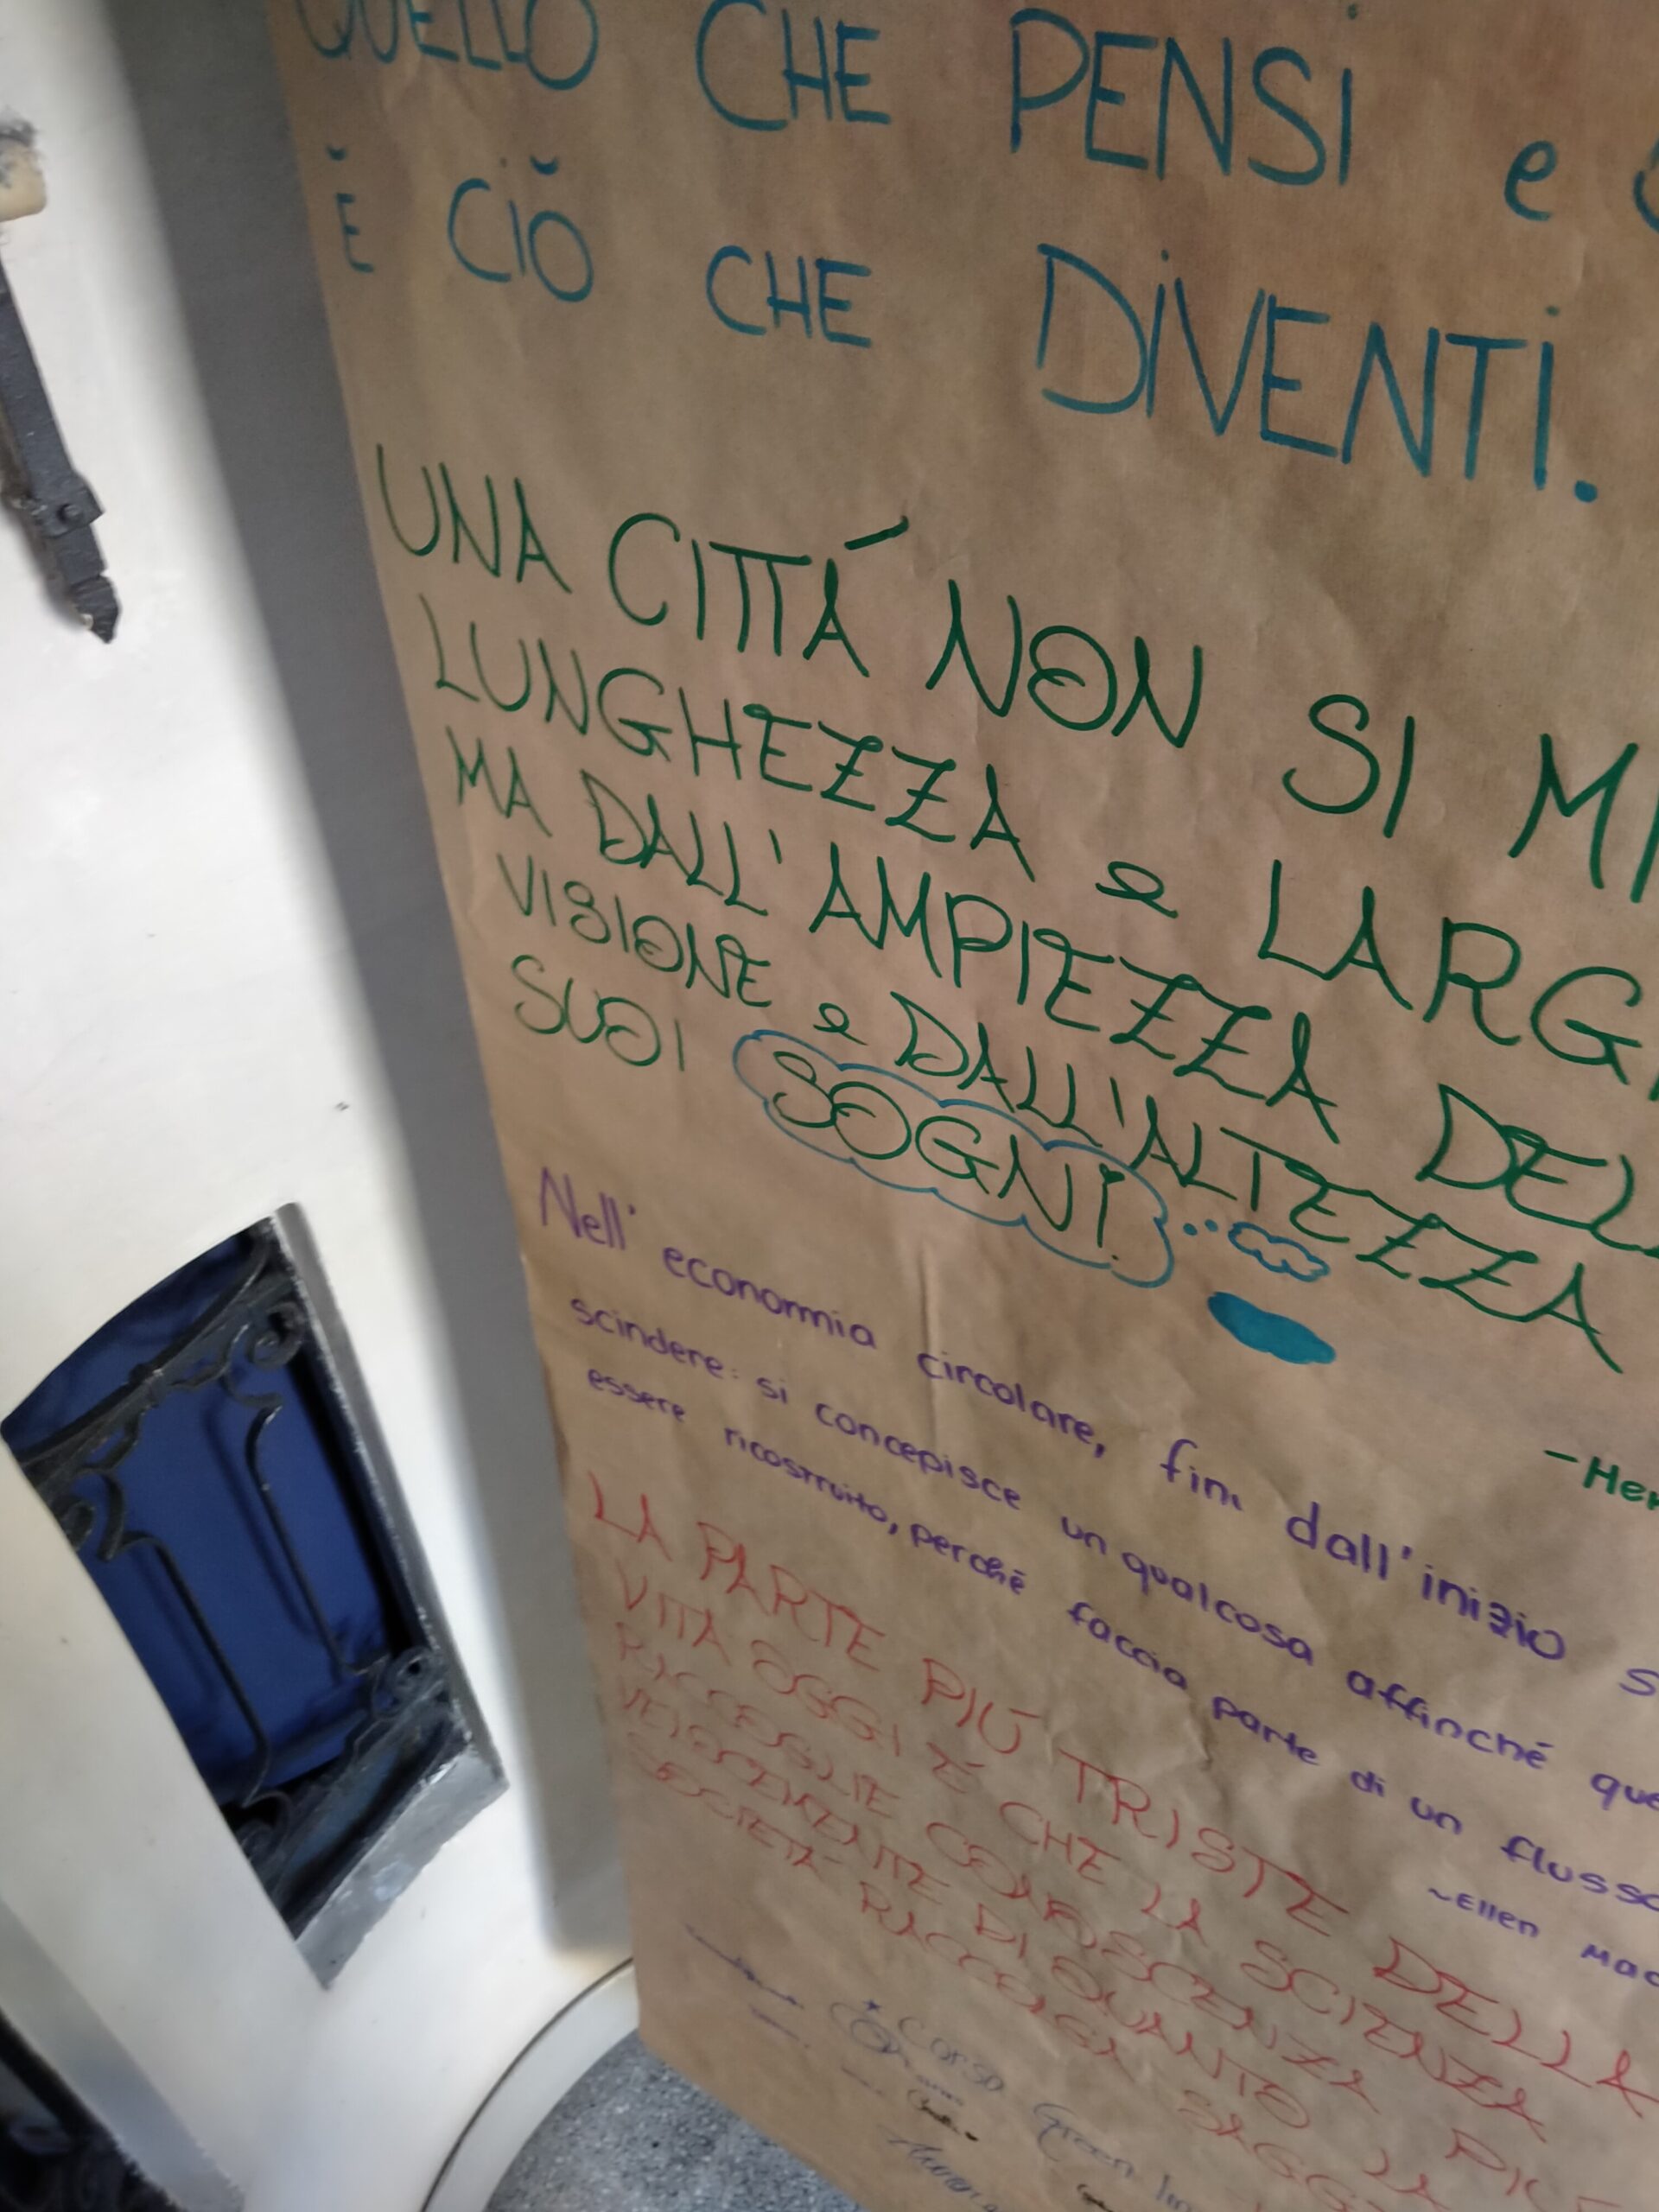 QUELLO CHE PENSI e
È CIÒ CHE DIVENTI.
UNA CITTÁ NON SI MI
LUNGHEZZA e LARG
MA DALL'AMPIEZZA DEL
VISIONE e DALL'ALTEZZA
SUOI SOGNI.
-Her
Nell' economia circolare, fin dall'inizio s
scindere: si concepisce un qualcosa affinché que
essere ricostruito, perché faccia parte di un flusso
~Ellen Mac
LA PARTE PIÚ TRISTE DELLA
VITA OGGI É CHE LA SCIENZA
RACCOGLIE CONOSCENZA PIÚ
VELOCEMENTE DI QUANTO LA
SOCIETÀ RACCOLGA SAGG
* Corso Green